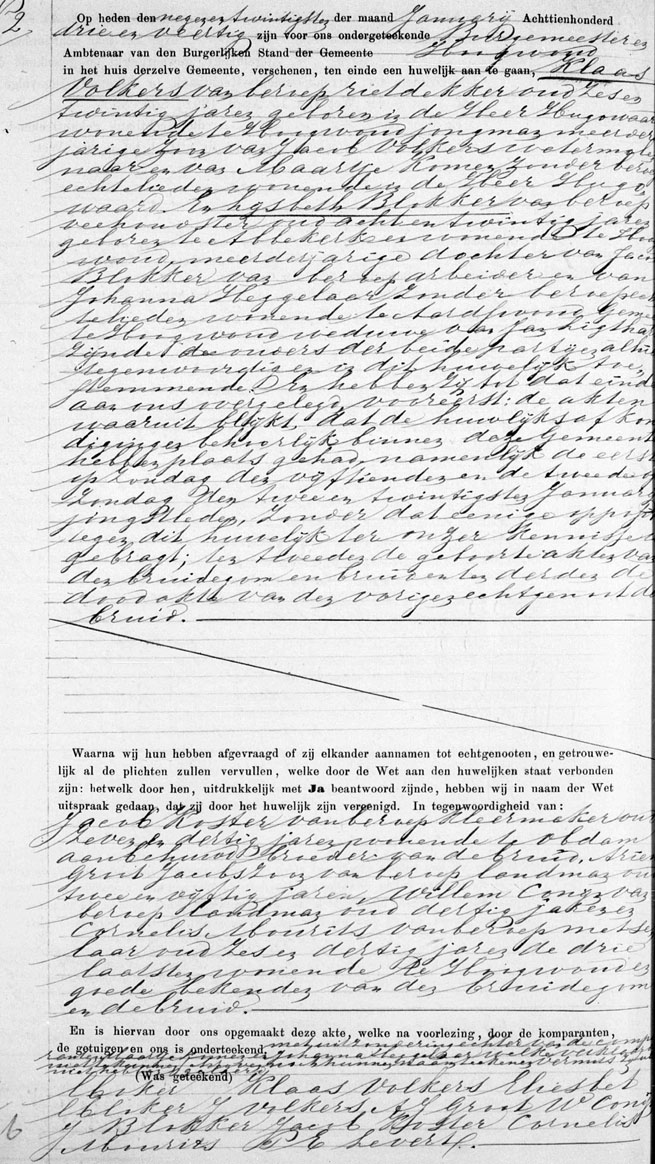 2
Op heden den negen en twintigsten der maand Januarij Achttienhonderd
drie en veertig zijn voor ons ondergeteekende Burgemeester en
Ambtenaar van den Burgerlijken Stand der Gemeente Hoogwoud
in het huis derzelve Gemeente, verschenen, ten einde een huwelijk aan te gaan, Klaas
Volkers van beroep rietdekker oud zes en
twintig jaren geboren in de Heer Hugowaar
wonende te Hoogwoud jongman meerder
jarige zoon van Jacob Volkers watermole
naar en van Maartje Komen zonder beroe
echtelieden wonende in de Heer Hugo
waard. En Lysbeth Blokker van beroep
veehoudster oud acht en twintig jaren
geboren te Abbekerk en wonende te Hoo
woud, meerderjarige dochter van Jaco
Blokker van beroep arbeider en van
Johanna Heggelaar zonder beroep ech
telieden wonende te Aardswoud geme
te Hoogwoud weduwe van Jan Zijtha
zijnde de ouders der beide partijen alhie
tegenwoordig en in dit huwelijk toe
stemmende. En hebben zij tot dat einde
aan ons overgelegd vooreerst: de akten
waaruit blijkt, dat de huwlijks afkon
digingen behoorlijk binnen deze Gemeent
hebben plaats gehad, namenlijk de eerst
op zondag den vijftienden en de tweede o
zondag den twee en twintigsten Januari
jongstleden, zonder dat eenige oppos
tegen dit huwelijk ter onzer kennisse i
gebragt; ten tweeden de geboorteakten van
den bruidegom en bruid en ten derden de
doodakte van den vorigen echtgenoot de
bruid.
Waarna wij hun hebben afgevraagd of zij elkander aannamen tot echtgenooten, en getrouwe-
lijk al de plichten zullen vervullen, welke door de Wet aan den huwelijken staat verbonden
zijn: hetwelk door hen, uitdrukkelijk met Ja beantwoord zijnde, hebben wij in naam der Wet
uitspraak gedaan, dat zij door het huwelijk zijn vereenigd. In tegenwoordigheid van:
Jacob Koster van beroep kleermaker oud
zeven en dertig jaren wonende te Obdam
aanbehuwd broeder van de bruid, Arien
Groot Jacobszoon van beroep landman ou
twee en vijftig jaren, Willem Conijn van
beroep landman oud dertig jaren en
Cornelis Mourits van beroep metse
laar oud zes en dertig jaren de drie
laatsten wonende te Hoogwoud en
goede bekenden van den bruidegom
en de bruid.
En is hiervan door ons opgemaakt deze akte, welke na voorlezing, door de komparanten,
de getuigen en ons is onderteekend, met uitzondering echter van de comp
(Was geteekend)
Klaas Volkers Eliesbet
Blokker J Volkers A J Groot W Conij
J Blokker Jacob Koster Cornelis
Mourits P E Zevert
6